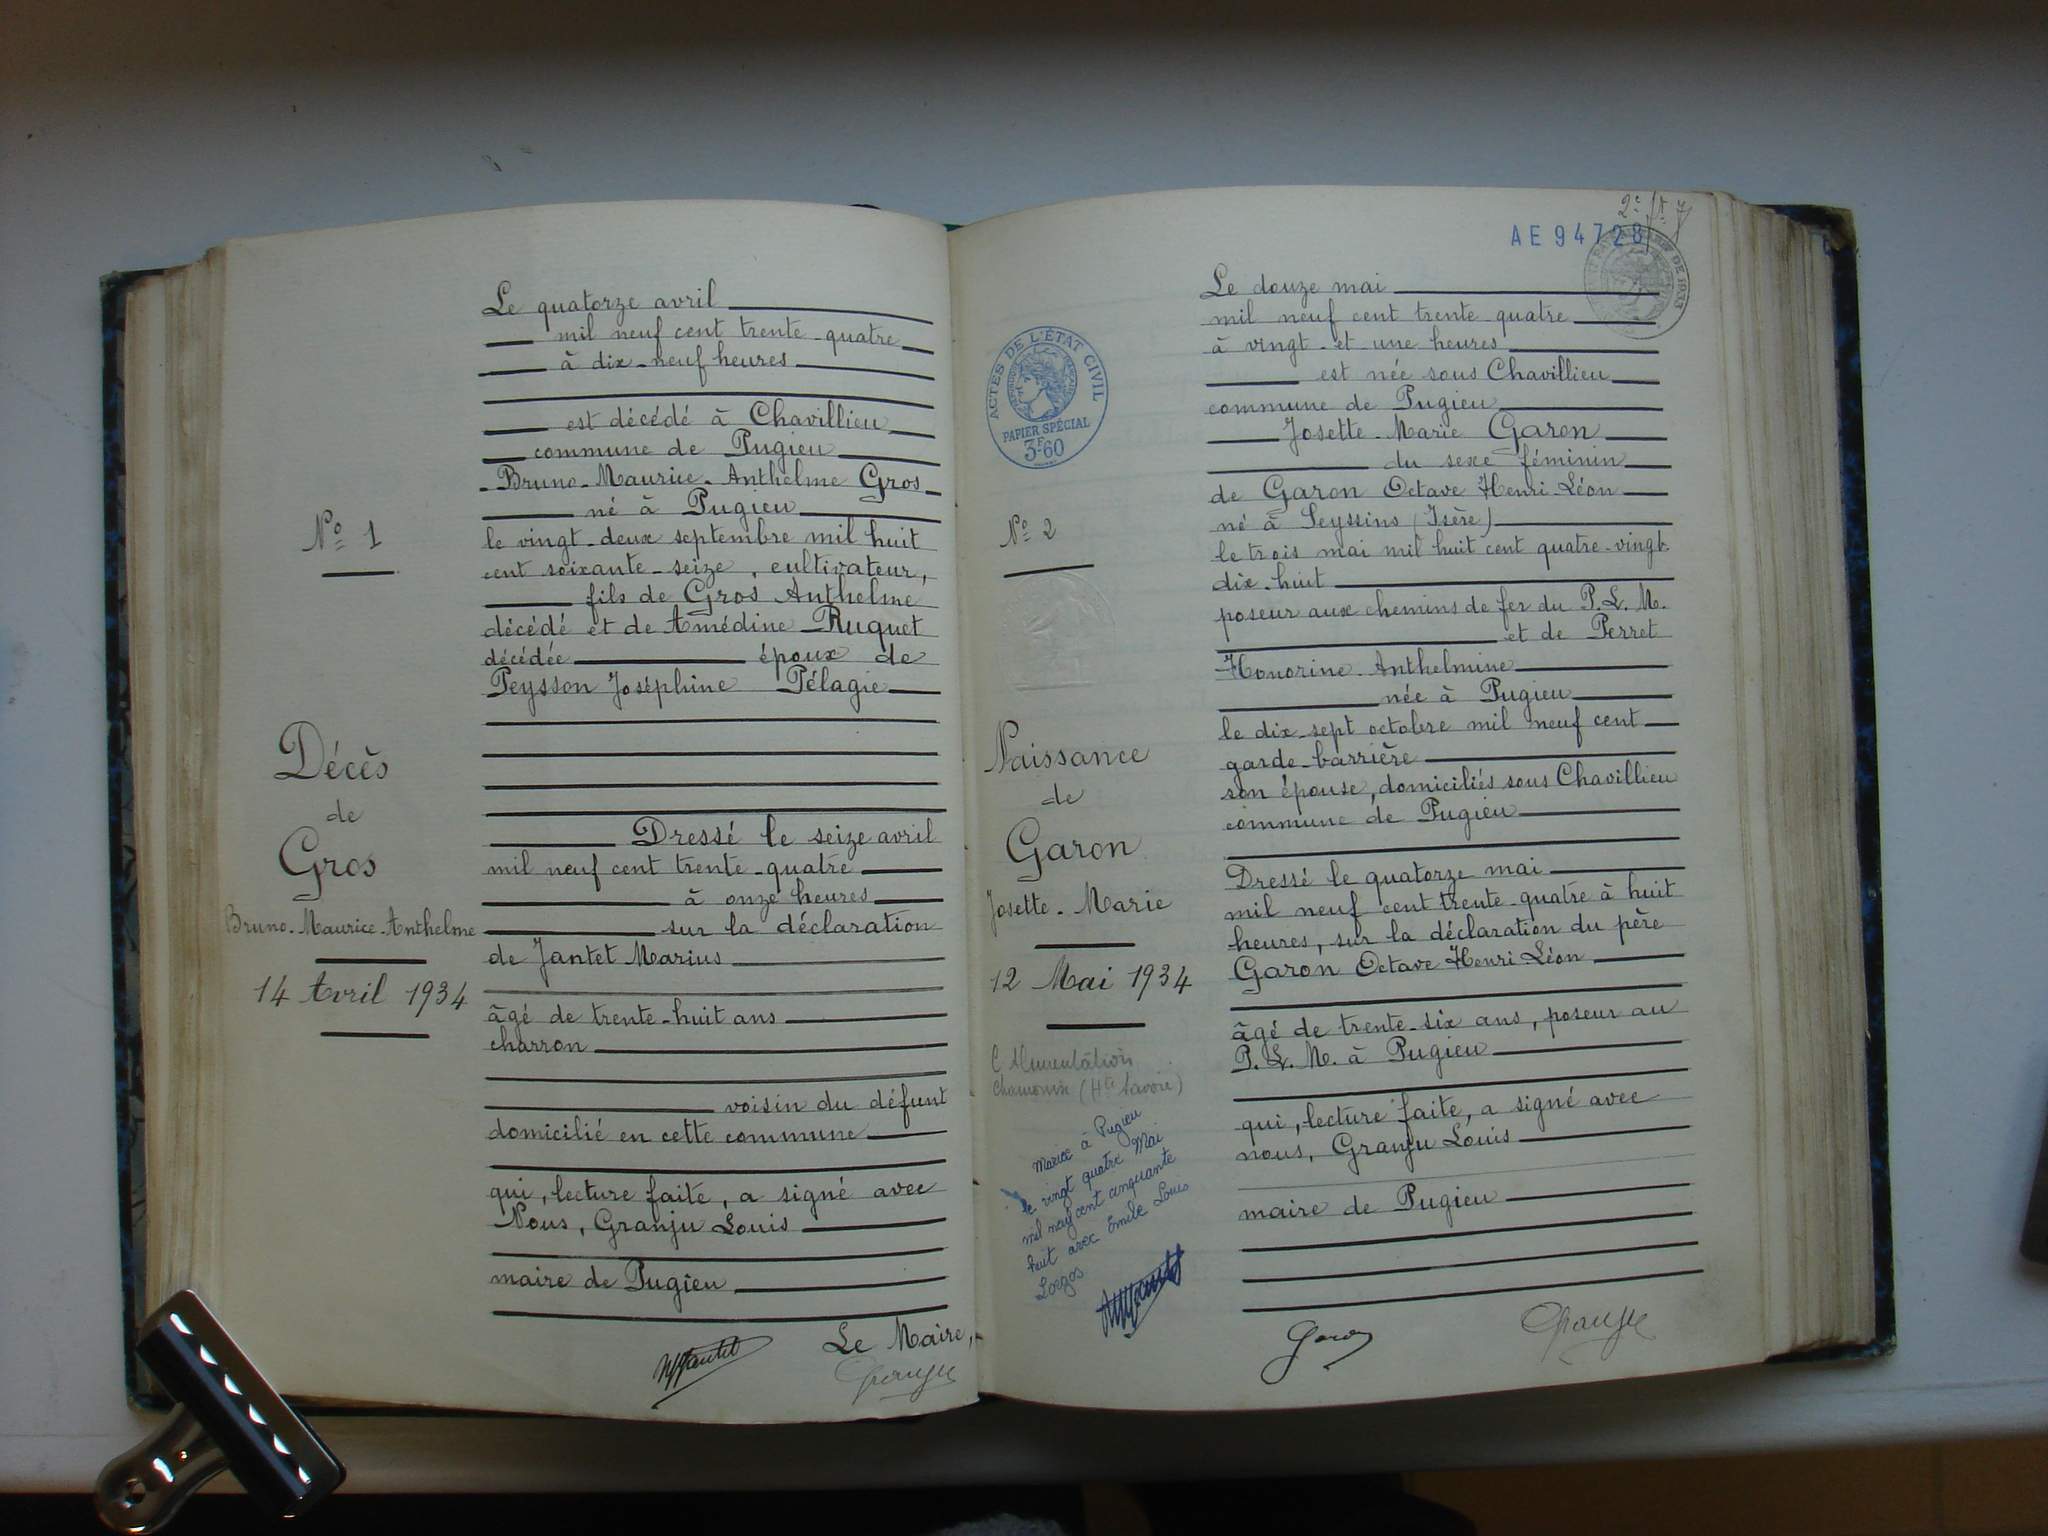 Le quatorze avril
mil neuf cent trente-quatre
à dix-neuf heures
est décédé à Chavillieu
commune de Pugieu
Bruno-Maurice-Anthelme Gros
né à Pugieu
le vingt-deux septembre mil huit
cent soixante-seize, cultivateur,
fils de Gros Anthelme
décédé et de Amédine Ruguet
décédée époux de
Peysson Joséphine Pélagie
Dressé le seize avril
mil neuf cent trente-quatre
à onze heures
sur la déclaration
de Jantet Marius
âgé de trente-huit ans
charron
voisin du défunt
domicilié en cette commune
qui, lecture faite, a signé avec
Nous, Granju Louis
maire de Pugieu
Le Maire,
Nº 1
Décès
de
Gros
Bruno-Maurice-Anthelme
14 Avril 1934
AE 94728
ACTES DE L'ÉTAT CIVIL
PAPIER SPÉCIAL
3F60
Nº 2
Naissance
de
Garon
Josette-Marie
12 Mai 1934
Alimentation
Chamonix (Hte Savoie)
Mariée à Pugieu
le vingt quatre Mai
mil neuf cent cinquante
huit avec Emile Louis
Le douze mai
mil neuf cent trente-quatre
à vingt-et-une heures
est née sous Chavillieu
commune de Pugieu
Josette-Marie Garon
du sexe féminin
de Garon Octave Henri-Léon
né à Seyssins (Isère)
le trois mai mil huit cent quatre-vingt-
dix-huit
poseur aux chemins de fer du P.L.M.
et de Perret
Honorine-Anthelmine
née à Pugieu
le dix-sept octobre mil neuf cent
garde-barrière
son épouse, domiciliés sous Chavillieu
commune de Pugieu
Dressé le quatorze mai
mil neuf cent trente-quatre à huit
heures, sur la déclaration du père
Garon Octave Henri Léon
âgé de trente-six ans, poseur au
P.L.M. à Pugieu
qui, lecture faite, a signé avec
nous, Granju Louis
maire de Pugieu
Garon
Granju